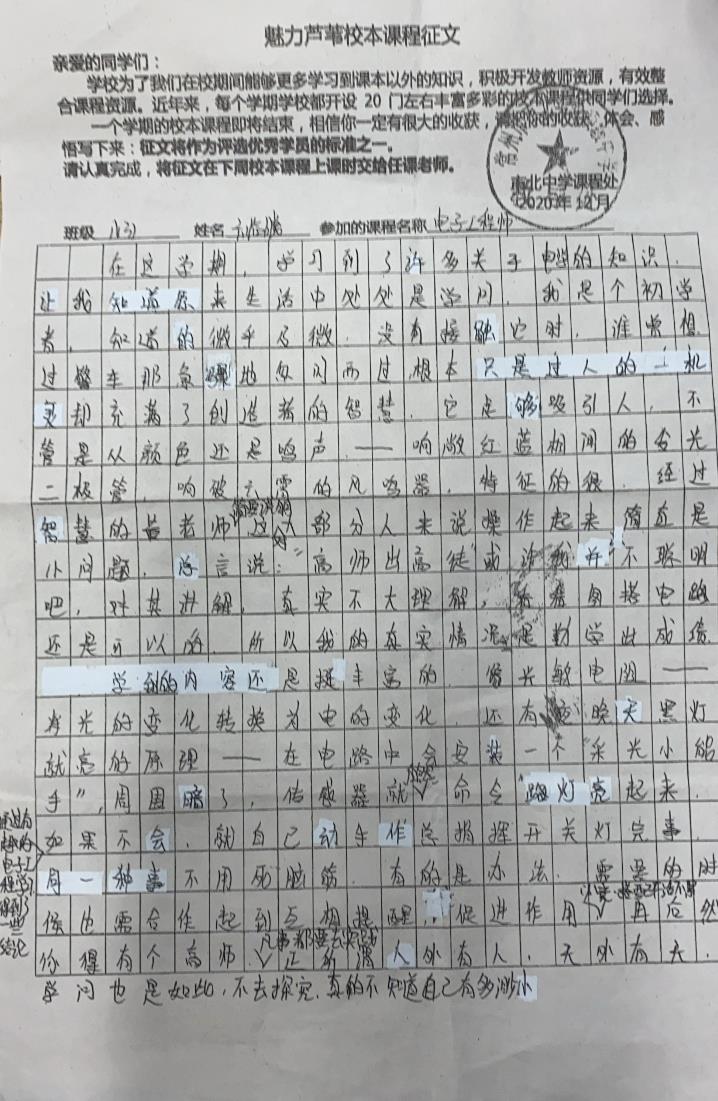 魅力芦苇校本课程征文
亲爱的同学们：
学校为了我们在校期间能够更多学习到课本以外的知识，积极开发教师资源，有效整
合课程资源。近年来，每个学期学校都开设 20 门左右丰富多彩的校本课程供同学们选择。
一个学期的校本课程即将结束，相信你一定有很大的收获，请把你的收获、体会、感
悟写下来：征文将作为评选优秀学员的标准之一。
请认真完成，将征文在下周校本课程上课时交给任课老师。
市北中学课程处
2020 年 12 月
班级 姓名 参加的课程名称 电子工程师
在这学期，学习到了许多关于电学的知识．
让我知道原来生活中处处是学问．我是个初学
者，知道的微乎及微．没有接触它时，谁曾想
过警车那急骤地女闪而过根本只是过人的一机
灵却充满了创造者的智慧．它足够吸引人，不
管是从颜色还是鸣声．——响敞红蓝相间的令光
二极管，响彼云霄的凤鸣器，特征的很．经过
智慧的长老师 这大部分人来说操作起来简直是
小问题．总言说：“高师出高徒”或许我并不聪明
吧，对其讲解，真实不大理解，看看自搭电路
还是可以的．所以我的真实情况是勤学出成绩
学到的内容还是挺丰富的．有光敏电阻——
将光的变化转换为电的变化．还有夜晚天黑灯
就亮的原理——在电路中会安装一个“采光小能
手”，周围暗了，传感器就 命令路灯亮起来．
如果不会，就自己动手作总指挥开关灯完事．
同一种事不用死脑筋．有的是办法．需要的时
候也需合作起到互相提醒，促进作用 再后然
你得有个高师．凡事都要去实践 正所谓人外有人，天外有天．
学问也是如此，不去探究，真的不知道自己有多渺小